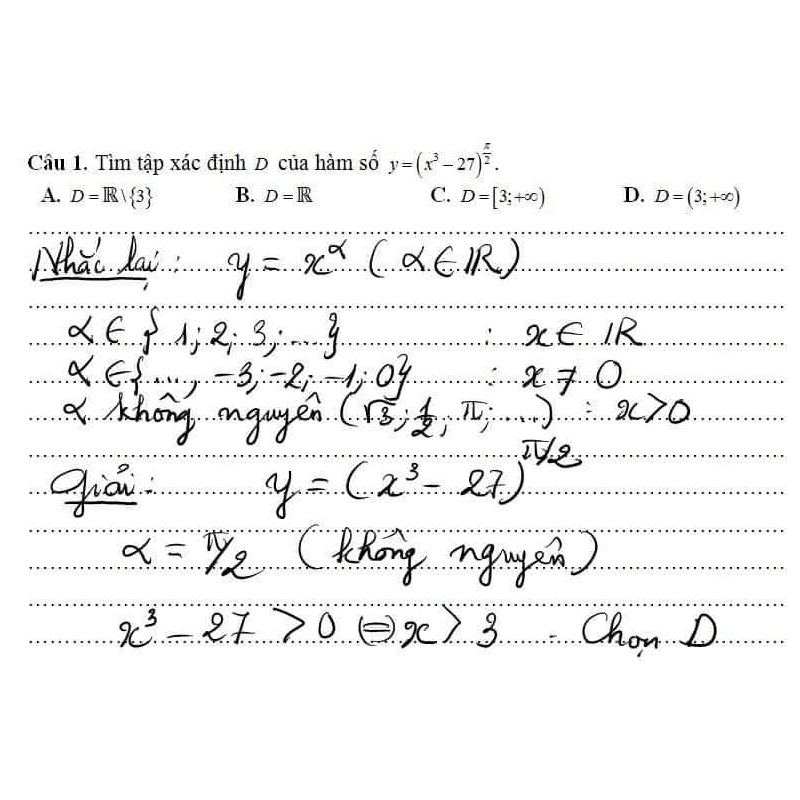 Câu 1. Tìm tập xác định D của hàm số y = (x³ − 27)^(π/2).
A. D = ℝ\{3} B. D = ℝ C. D = [3; +∞) D. D = (3; +∞)
Nhắc lại : y = x^α ( α ∈ ℝ )
α ∈ { 1; 2; 3; ... } : x ∈ ℝ
α ∈ { ..., −3; −2; −1; 0 } : x ≠ 0
α không nguyên ( √3; 1/2; π; ... ) : x > 0
Giải : y = ( x³ − 27 )^(π/2)
α = π/2 ( không nguyên )
x³ − 27 > 0 ⇔ x > 3 . Chọn D